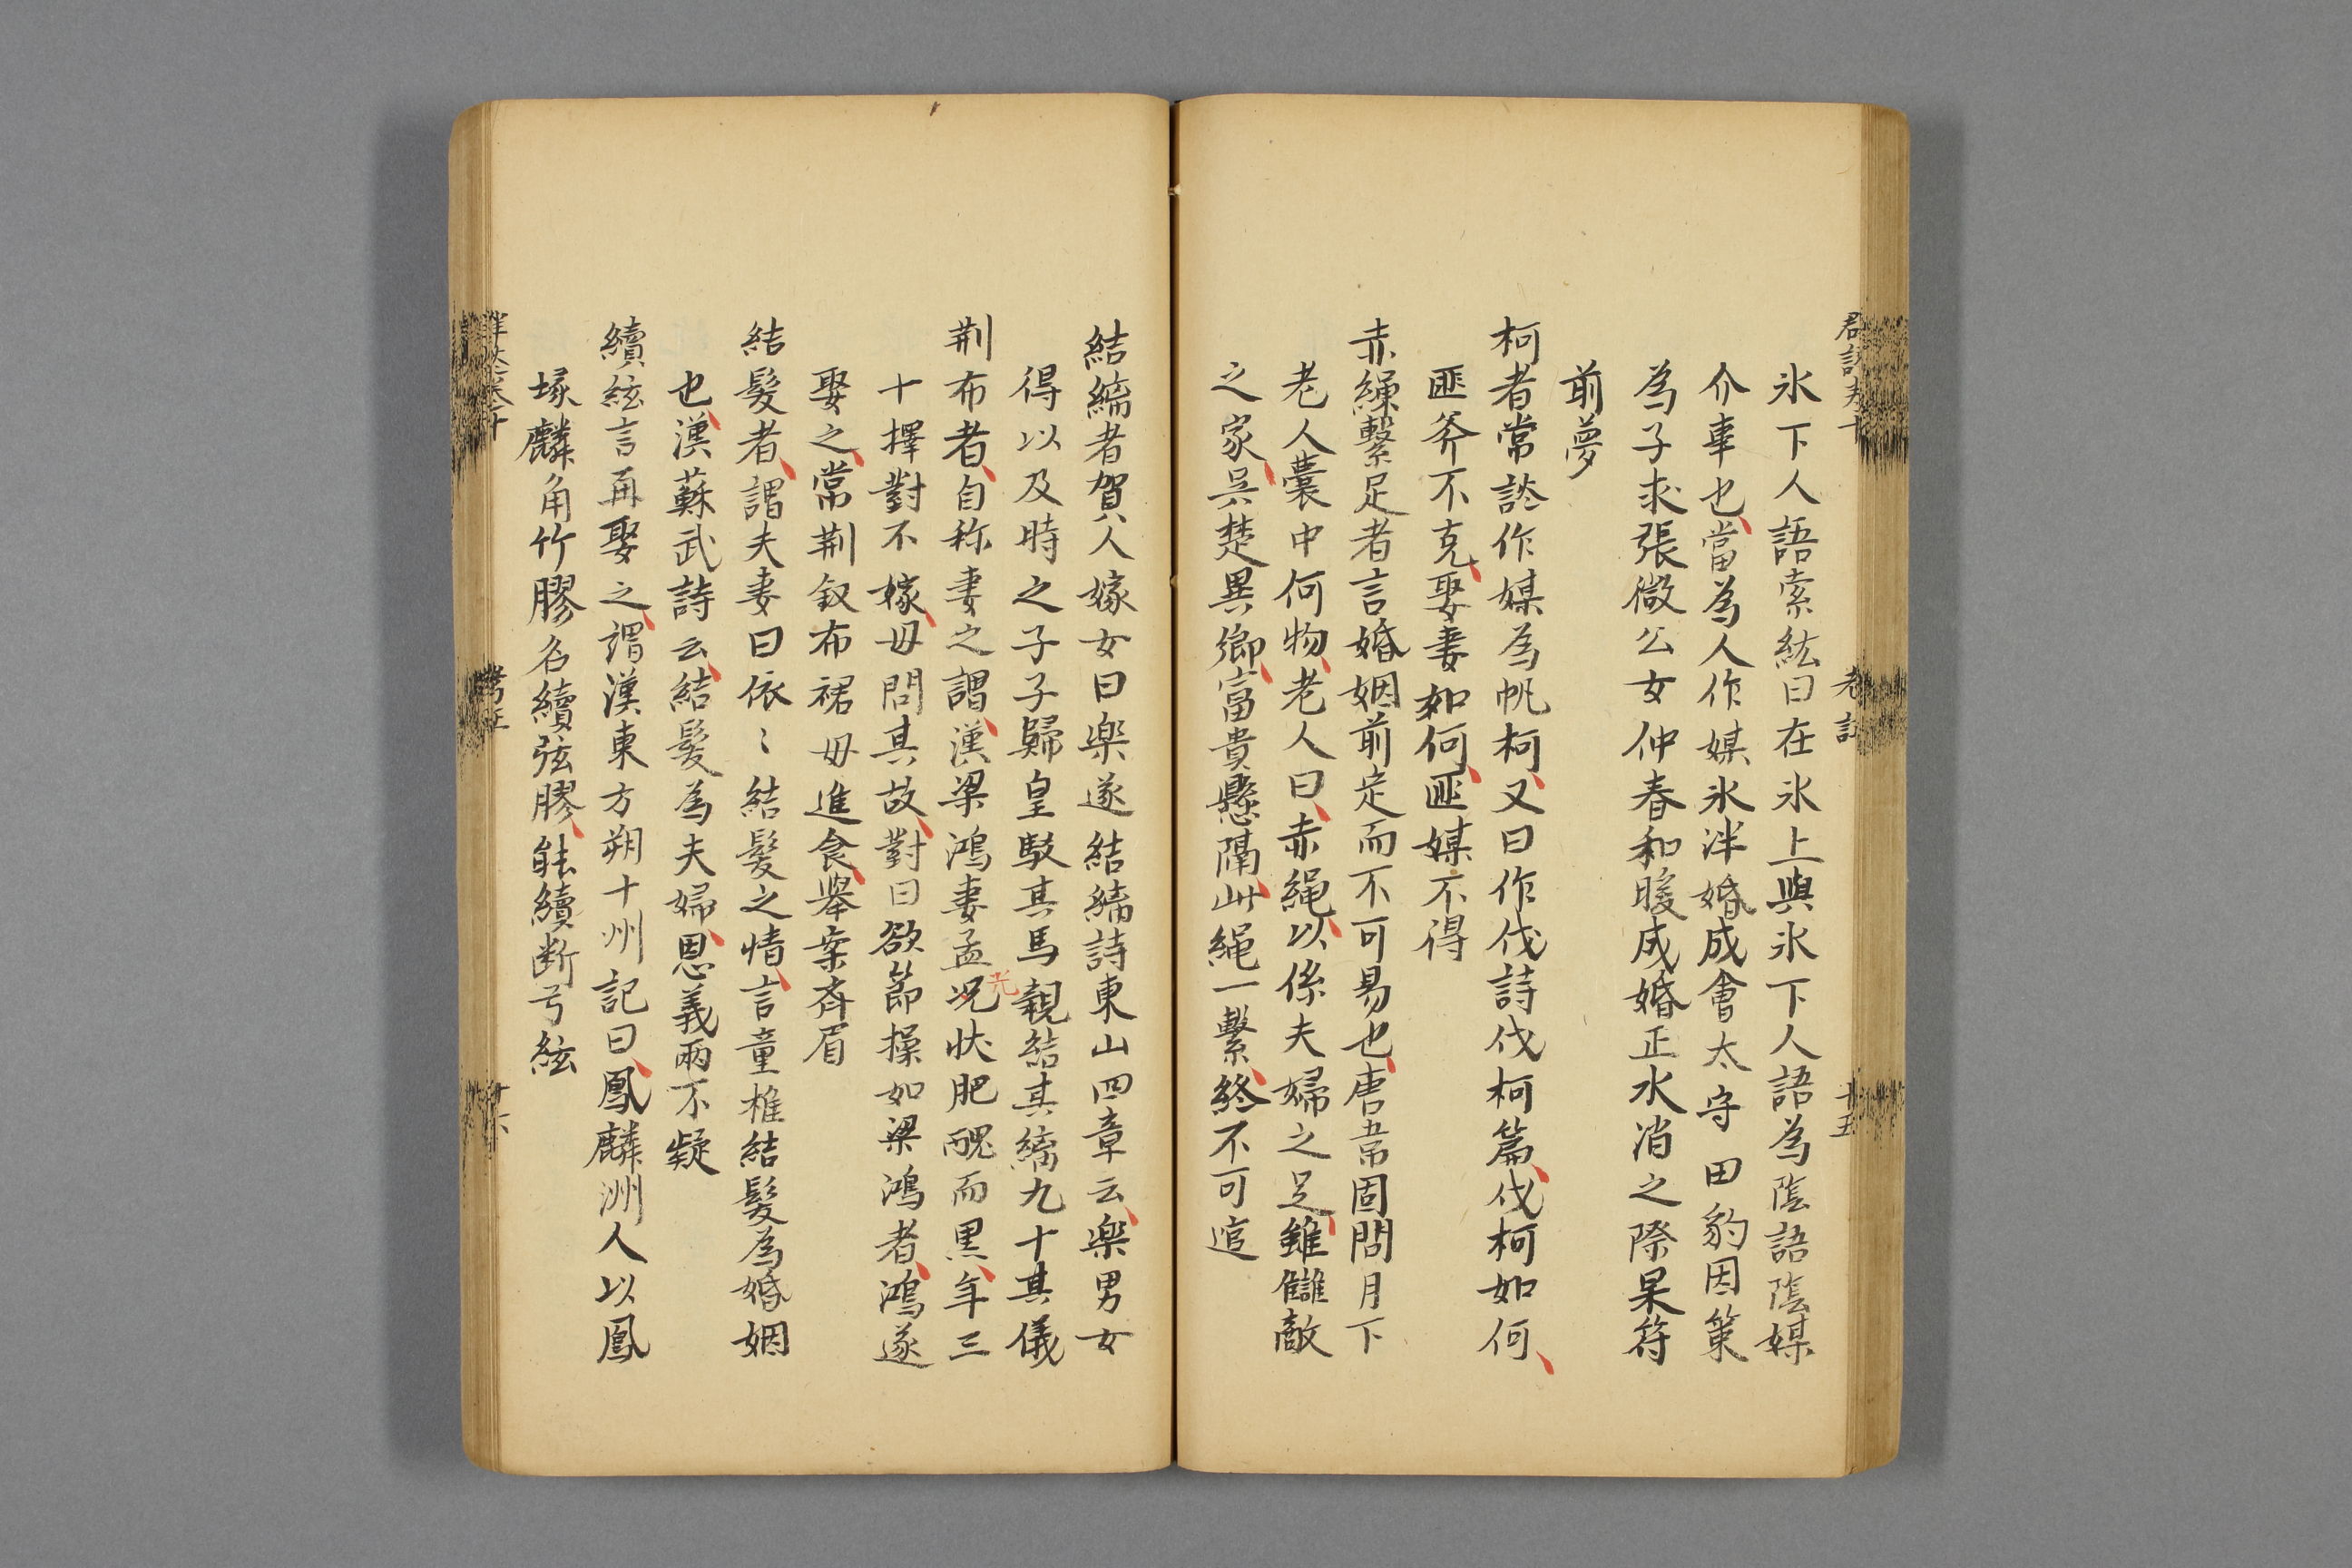 氷下人語索紞曰在氷上與氷下人語為陰語陰媒
介事也當為人作媒氷泮婚成會太守田豹因策
為子求張徴公女仲春和暖成婚正水消之際果符
前夢
柯者常談作媒為帆柯又曰作伐詩伐柯篇伐柯如何
匪斧不克娶妻如何匪媒不得
赤繩繫足者言婚姻前定而不可易也唐韋固問月下
老人囊中何物老人曰赤繩以係夫婦之足雖讎敵
之家吳楚異鄉富貴懸隔此繩一繫終不可逭
結縭者賀人嫁女曰楽遂結縭詩東山四章云楽男女
得以及時之子子歸皇駁其馬親結其縭九十其儀
荆布者自称妻之謂漢梁鴻妻孟況状肥醜而黒年三
光
十擇對不嫁毋問其故對曰欲節操如梁鴻者鴻遂
娶之常荆釵布裙毋進食舉案斉眉
結髮者謂夫妻曰依〻結髮之情言童椎結髮為婚姻
也漢蘇武詩云結髮為夫婦恩義兩不疑
續絃言再娶之謂漢東方朔十州記曰鳳麟洲人以鳳
塚麟角竹膠名續弦膠能續断弓絃